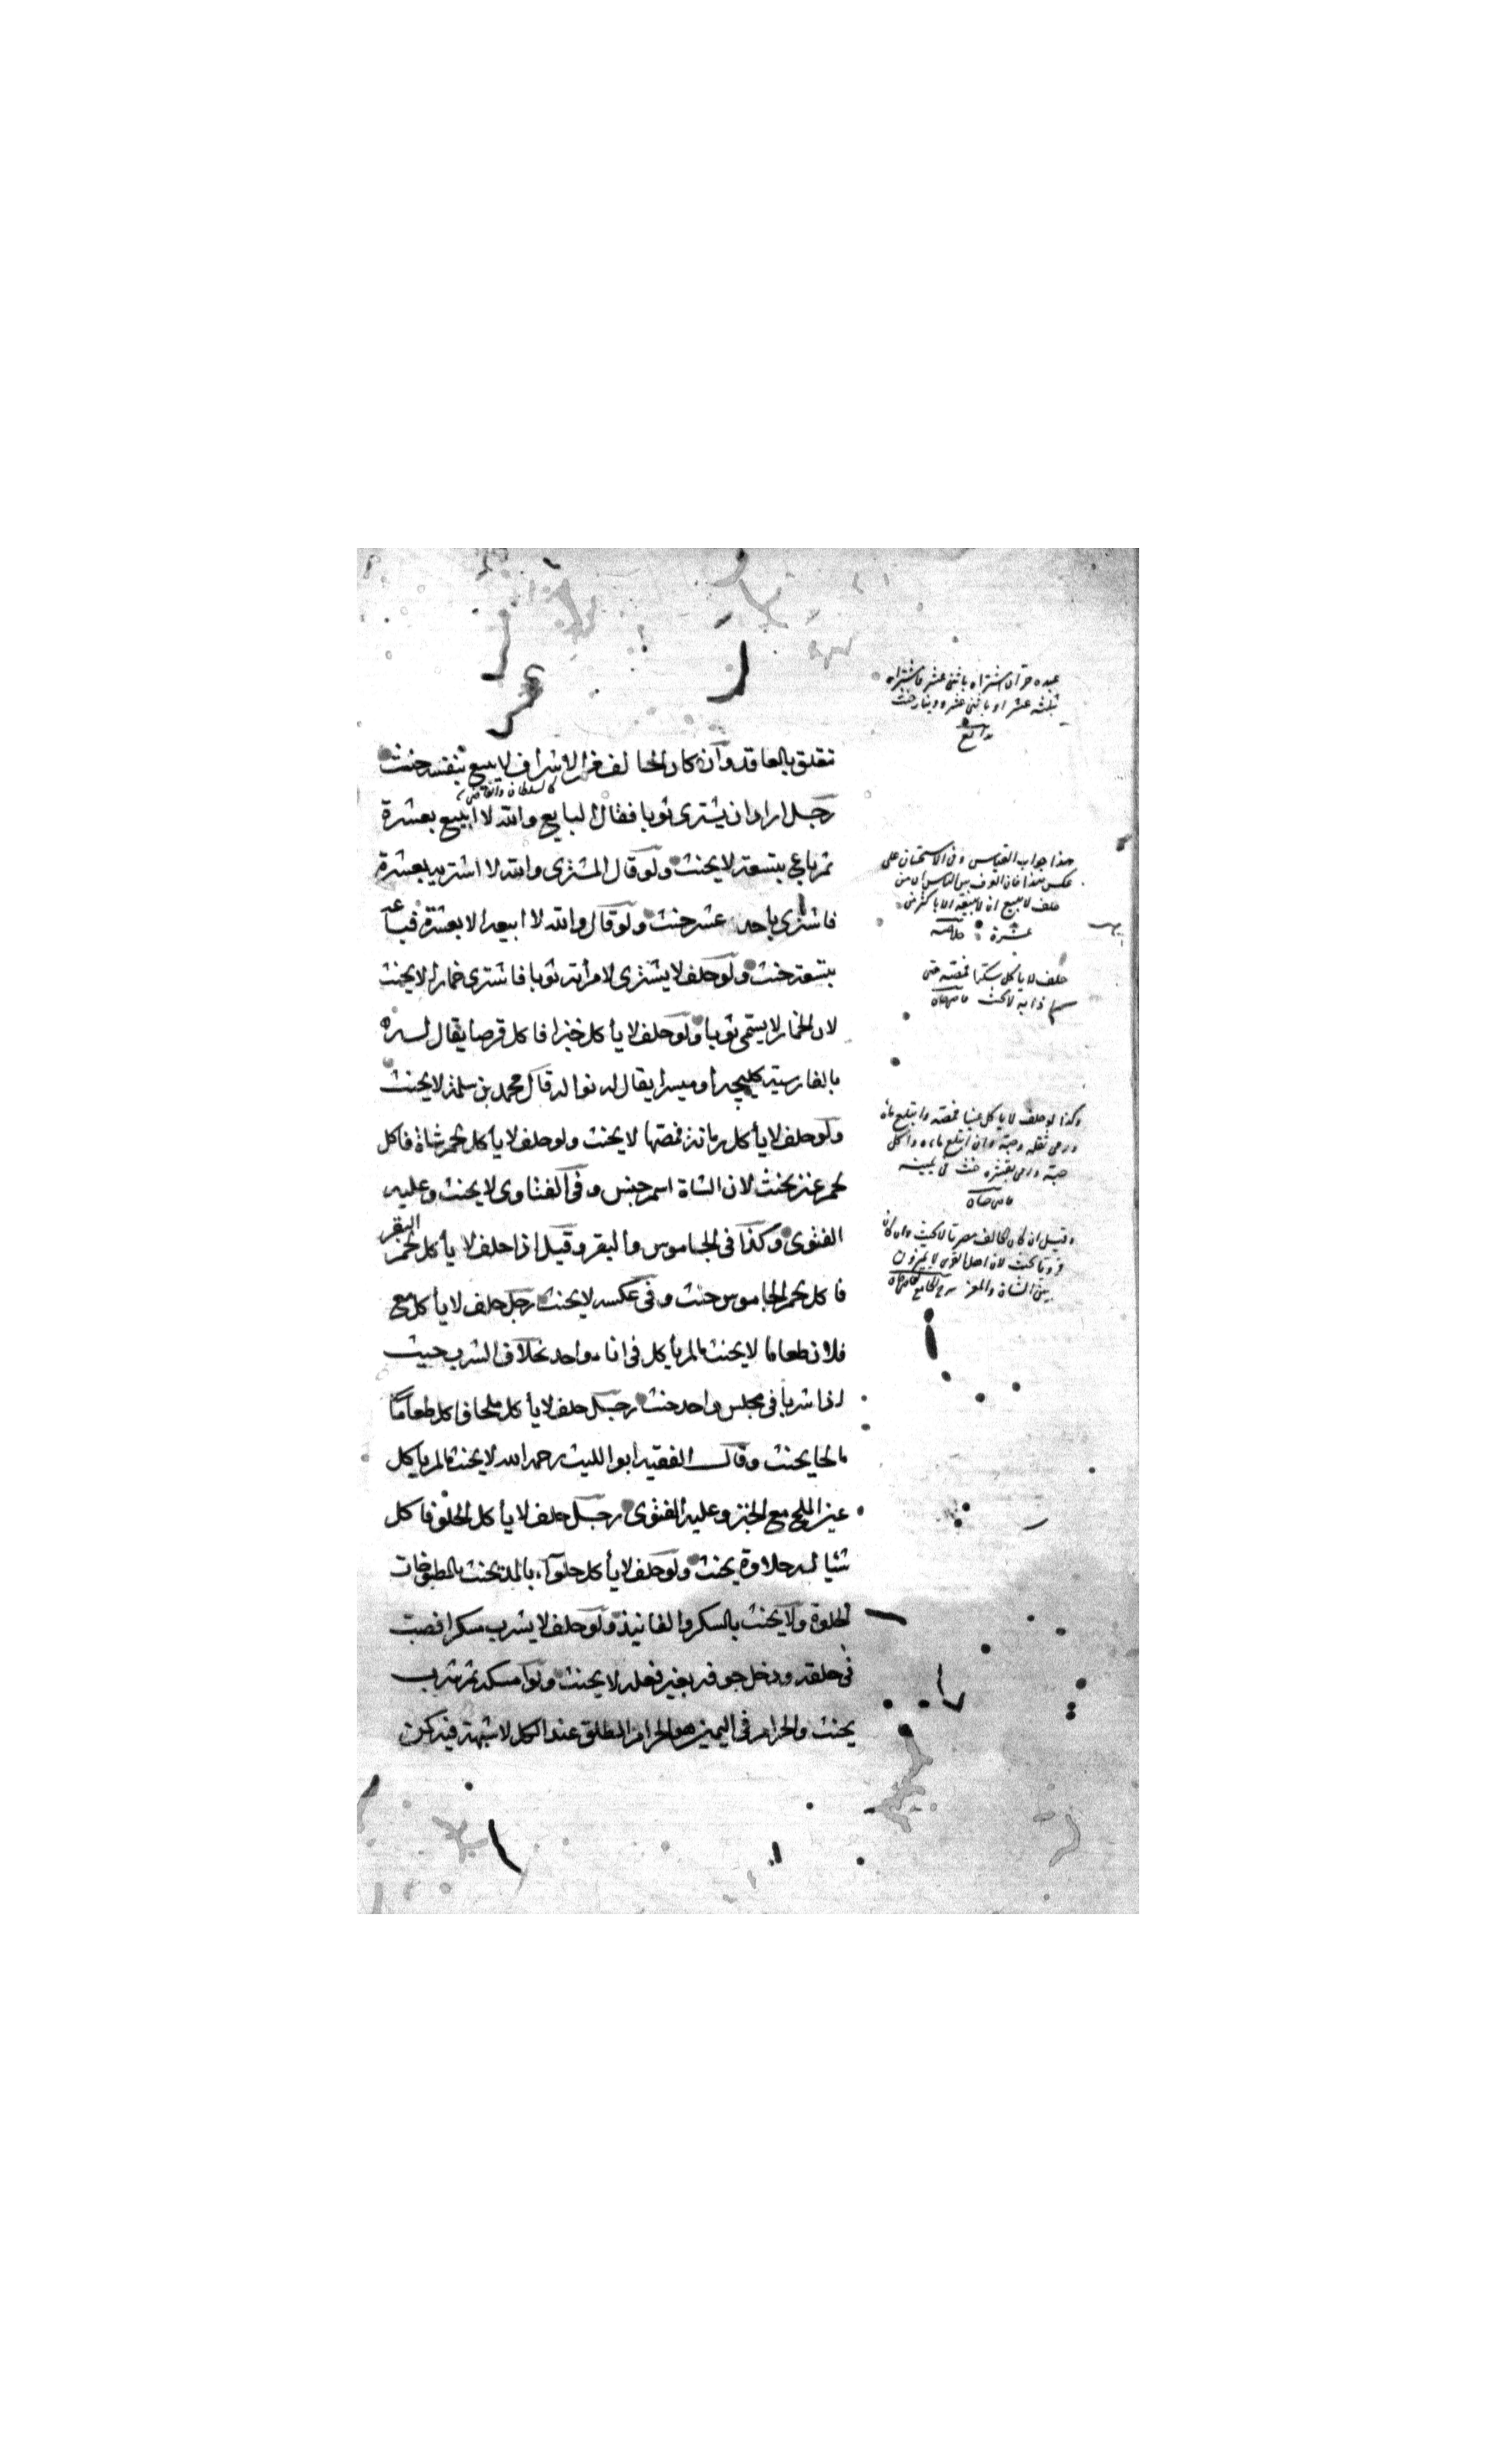 تتعلق بالعاقد وان كان الحالف من الاشراف لا يبيع بنفسه حنث
كالسلطان والقاضي
رجل اراد ان يشترى ثوبا فقال البايع والله لا ابيع بعشرة
ثم باع بتسعة لا يحنث ولو قال المشترى والله لا اشتريه بعشرة
فاشترى باحد عشر حنث ولو قال والله لا ابيعه الا بعشرة فباعه
بتسعة حنث ولو حلف لا يشترى لامرأته ثوبا فاشترى خمارا لا يحنث
لان الخمار لا يسمى ثوبا ولو حلف لا يأكل خبزا فاكل قرصا يقال له
بالفارسية كليچه او ميسرا يقال له نواله قال محمد بن سلمة لا يحنث
ولو حلف لا يأكل رمانة فمصها لا يحنث ولو حلف لا يأكل لحم شاة فاكل
لحم عنز يحنث لان الشاة اسم جنس وفى الفتاوى لا يحنث وعليه
الفتوى وكذا فى الجاموس والبقر وقيل اذا حلف لا يأكل لحم البقر
فاكل لحم الجاموس حنث وفى عكسه لا يحنث رجل حلف لا يأكل مع
فلان طعاما لا يحنث مالم يأكل فى اناء واحد بخلاف الشرب حيث
اذا شربا فى مجلس واحد حنث رجل حلف لا يأكل ملحا فاكل طعاما
مالحا يحنث وقال الفقيه ابو الليث رحمه الله لا يحنث مالم يأكل
عين الملح مع الخبز وعليه الفتوى رجل حلف لا يأكل الحلو فاكل
شيئا له حلاوة يحنث ولو حلف لا يأكل حلوآء بالمد يحنث بالمطبوخات
الحلوة ولا يحنث بالسكر والفانيذ ولو حلف لا يشرب مسكرا فصبت
فى حلقه ودخل جوفه بغير فعله لا يحنث ولو امسكه ثم شرب
يحنث والحرام فى اليمين هو الحرام المطلق عند الكل لا شبهة فيه كمن
عبده حر ان اشتراه باثنى عشر فاشتراه
بثلثة عشر او باثنى عشر ودينار حنث
بدايع
هذا جواب القياس وفى الاستحسان على
عكس هذا فان العرف بين الناس ان من
حلف لا يبيع ان لا يبيعه الا باكثر من
عشرة خلاصه
حلف لا يأكل سكرا فمصه حتى
ذابه لا يحنث قاضيخان
وكذا لو حلف لا يأكل عنبا فمصه وابتلع ماءه
ورمى ثفله وحبه وان ابتلع ماءه واكل
حبه ورمى بقشره حنث فى يمينه
قاضيخان
وقيل ان كان الحالف مصريا لا يحنث وان كان
قرويا يحنث لان اهل القرى لا يميزون
بين الشاة والمعز